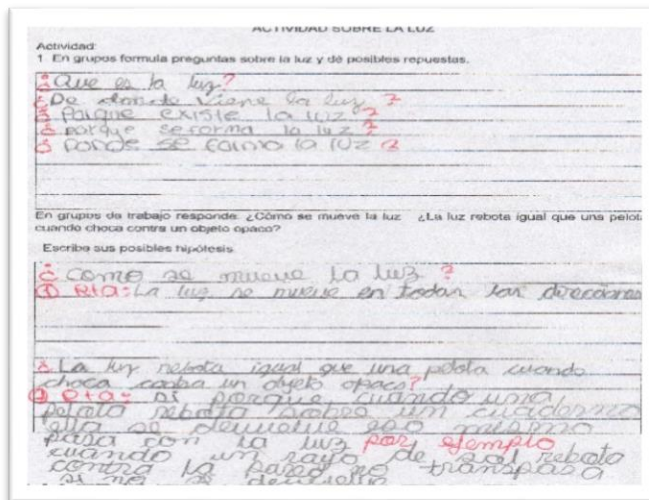 ACTIVIDAD SOBRE LA LUZ
Actividad:
1 En grupos formula preguntas sobre la luz y dé posibles repuestas.
¿Que es la luz?
¿De donde viene la luz?
¿Porque existe la luz?
¿porque se forma la luz?
¿Donde se formo la luz?
En grupos de trabajo responde: ¿Cómo se mueve la luz ¿La luz rebota igual que una pelota
cuando choca contra un objeto opaco?
Escribe sus posibles hipótesis
¿como se mueve la luz?
① Rta: La luz se mueve en todas las direcciones
¿La luz rebota igual que una pelota cuando
choca un objeto opaco?
Rta: si porque cuando una
pelota rebota sobre un cuaderno
ella se devuelve eso mismo
pasa con la luz por ejemplo
cuando un rayo de sol rebota
contra la pared no transpasa
si no se devuelve